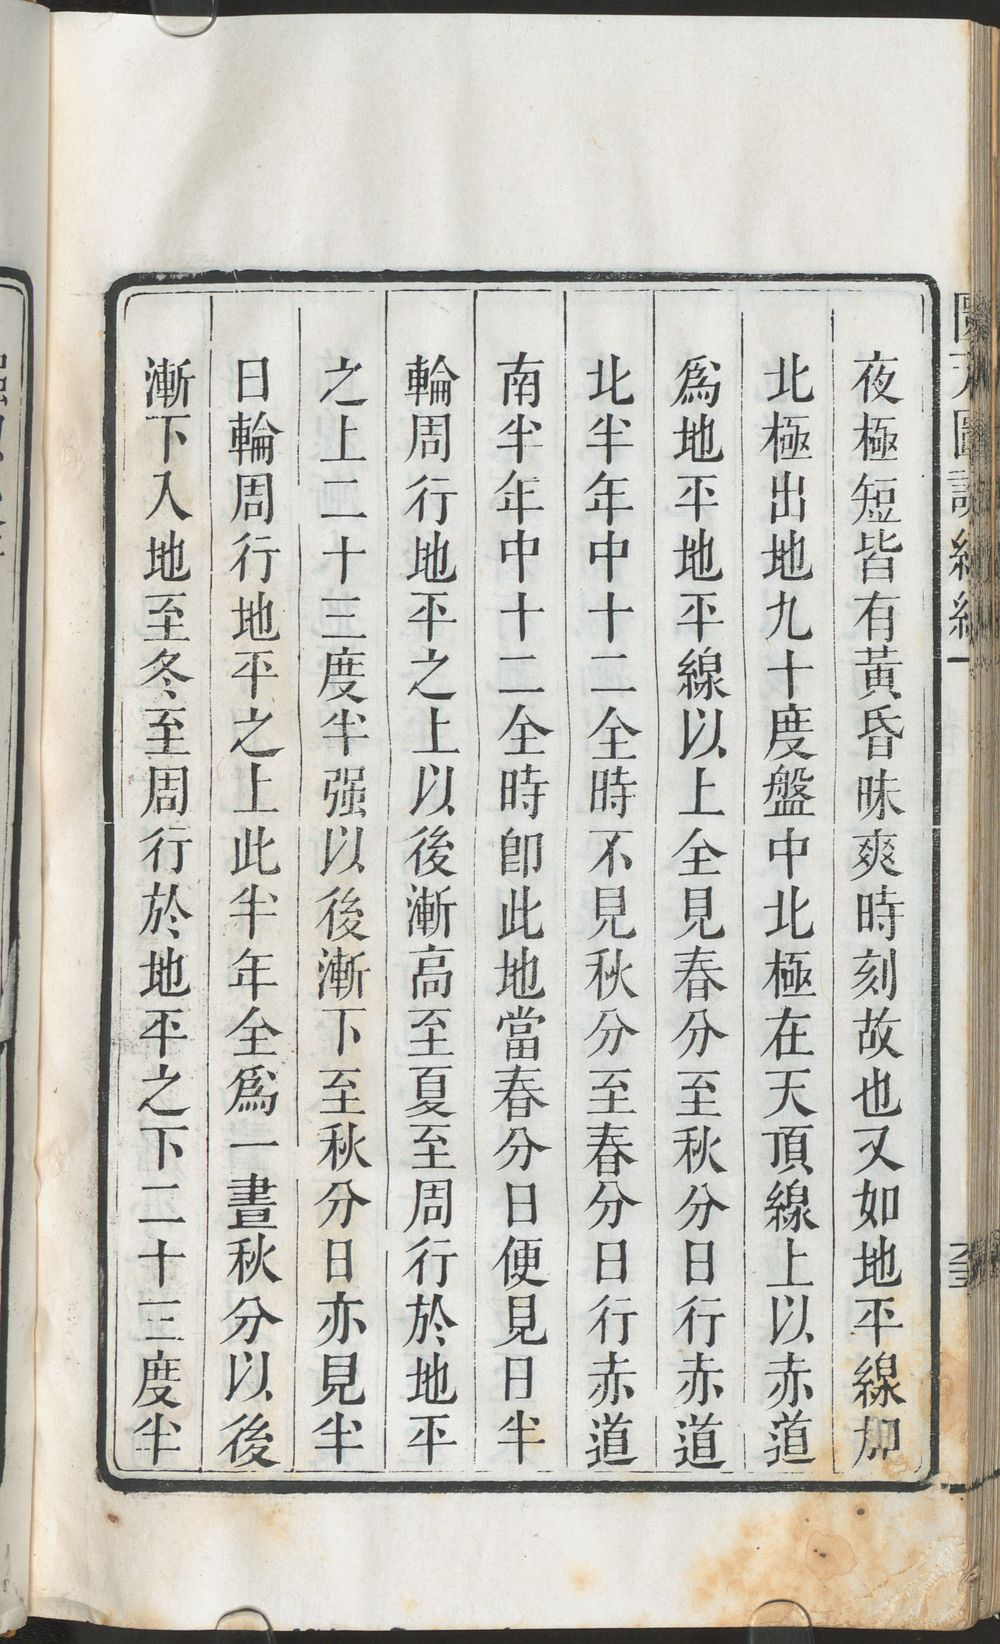 夜極短皆有黃昏昧爽時刻故也又如地平線加
北極出地九十度盤中北極在天頂線上以赤道
爲地平地平線以上全見春分至秋分日行赤道
北半年中十二全時不見秋分至春分日行赤道
南半年中十二全時卽此地當春分日便見日半
輪周行地平之上以後漸高至夏至周行於地平
之上二十三度半强以後漸下至秋分日亦見半
日輪周行地平之上此半年全爲一晝秋分以後
漸下入地至冬至周行於地平之下二十三度半